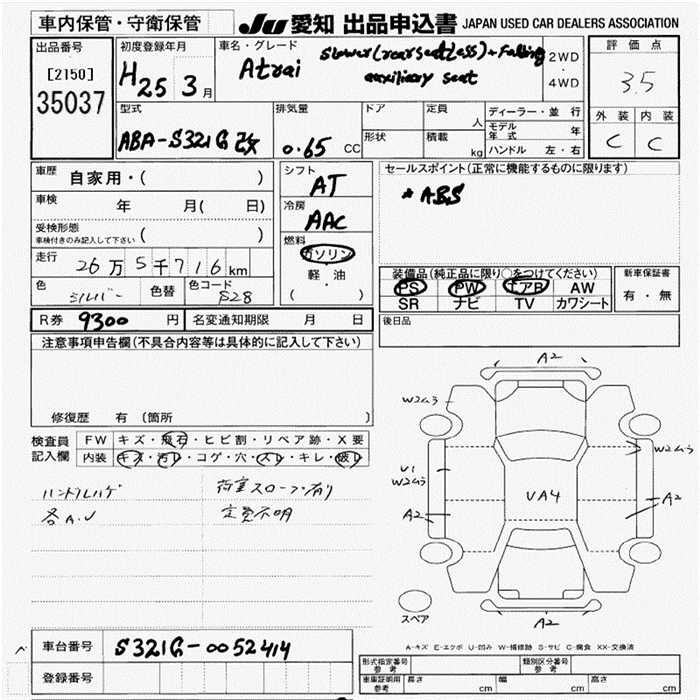 車内保管・守衛保管
JU 愛知 出品申込書 JAPAN USED CAR DEALERS ASSOCIATION
出品番号
[2150]
35037
初度登録年月
H25 3月
車名・グレード
Atrai
slower(rear seat less)+Falling
auxiliary seat
2WD
・
4WD
評価点
3.5
外装 内装
C C
型式
ABA-S321G改
排気量
0.65 CC
ドア
形状
定員 人
積載 kg
ディーラー・並行
モデル年式 年
ハンドル 左・右
車歴 自家用・( )
車検 年 月( 日)
受検形態
車検付きのみ記入して下さい ( )
走行 26万5千716km
色 シルバー 色替 色コード S28
シフト
AT
冷房
AAC
燃料
ガソリン
軽・油
( )
セールスポイント(正常に機能するものに限ります)
*ABS
装備品(純正品に限り○をつけてください)
PS PW エアB AW
SR ナビ TV カワシート
新車保証書
有・無
R券 9300 円 名変通知期限 月 日
後日品
注意事項申告欄(不具合内容等は具体的に記入して下さい)
修復歴 有 (箇所 )
検査員
記入欄
FW キズ・飛石・ヒビ割・リペア跡・X要
内装 キズ・汚レ・コゲ・穴・スレ・キレ・破レ
ハンドルハゲ
各A.U
荷室スロープ有り
定員不明
A2
W2ムラ
W2ムラ
U1
W2ムラ
A2
VA4
A2
A2
スペア
A-キズ E-エクボ U-凹み W-補修跡 S-サビ C-腐食 XX-交換済
車台番号 S321G-0052414
登録番号
形式指定番号
参考
類別区分番号
参考
車庫証明用
参考
長さ cm 幅 cm 高さ cm